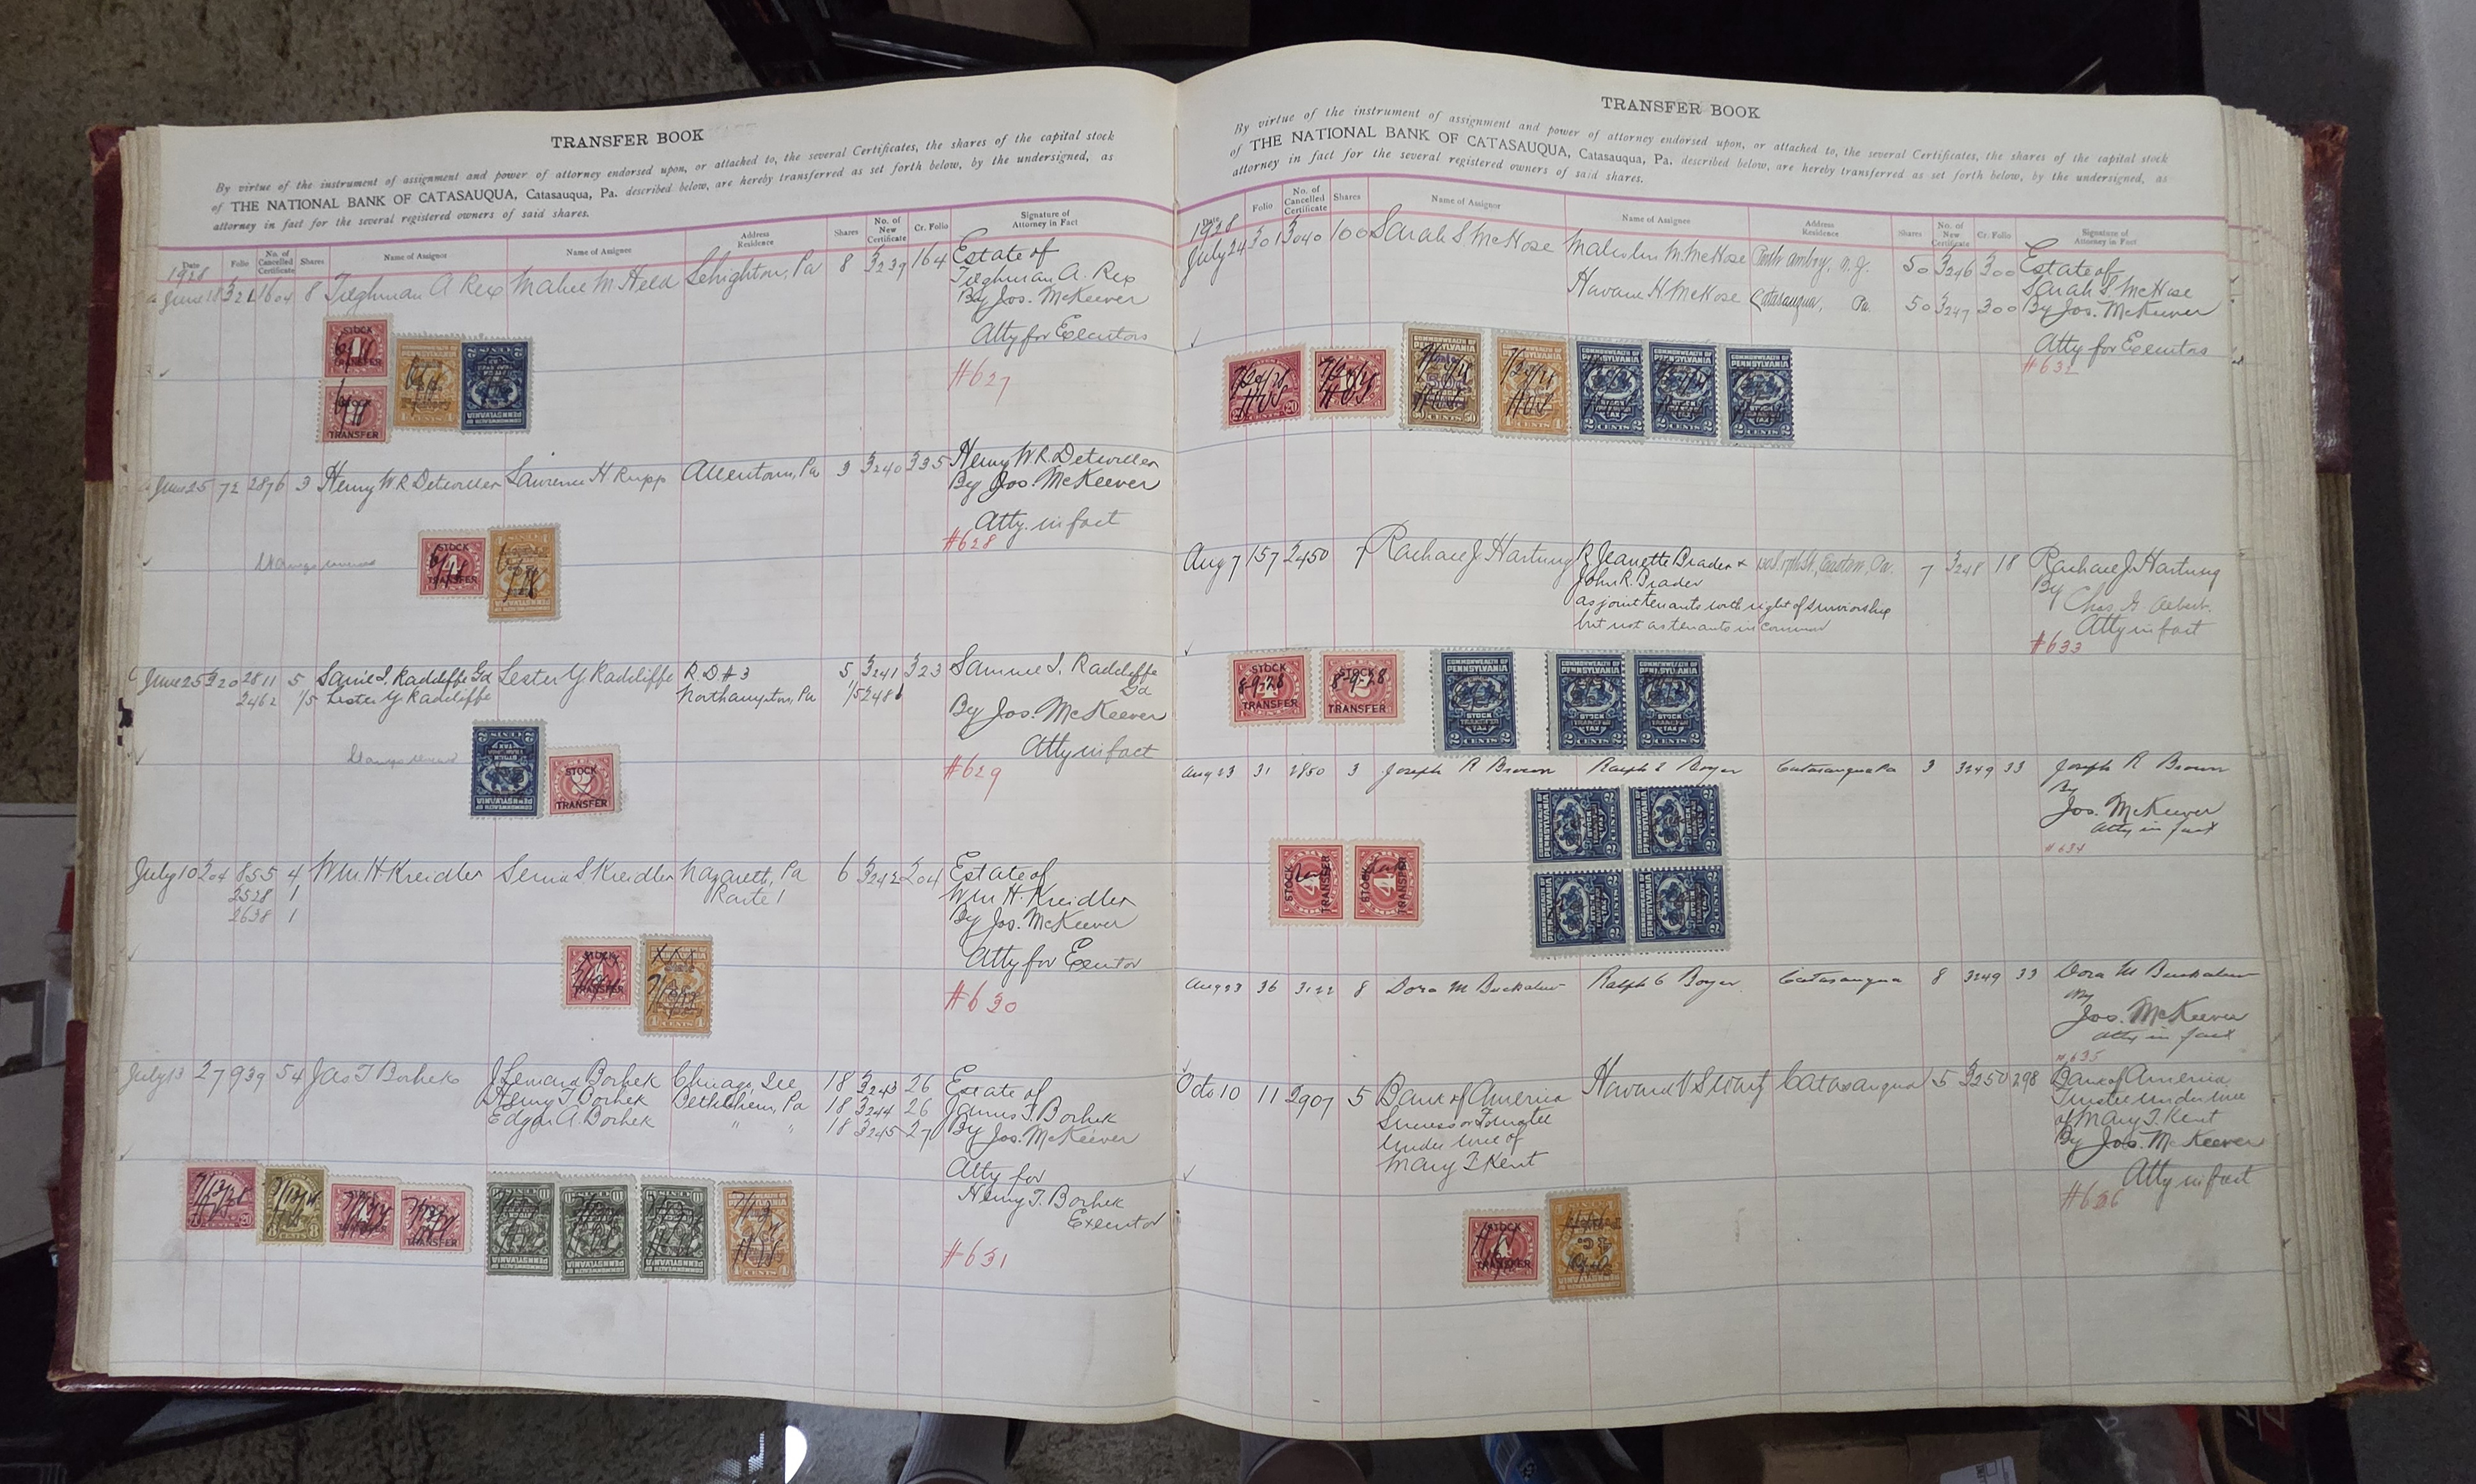 TRANSFER BOOK
By virtue of the instrument of assignment and power of attorney endorsed upon, or attached to, the several Certificates, the shares of the capital stock
of THE NATIONAL BANK OF CATASAUQUA, Catasauqua, Pa. described below, are hereby transferred as set forth below, by the undersigned, as
attorney in fact for the several registered owners of said shares.
Date Folio No. of Cancelled Certificate Shares Name of Assignor Name of Assignee Address Residence Shares No. of New Certificate Cr. Folio Signature of Attorney in Fact
1928
June 18 321 1604 8 Tilghman A Rex M. Held Lehighton, Pa 8 3239 164 Estate of
Tilghman A. Rex
By Jos. McKeever
Atty for Executors
#627
STOCK TRANSFER
TRANSFER
June 25 72 2876 3 Henry W. R. Detwiller Lawrence H. Rupp Allentown, Pa 3 3240 335 Henry W. R. Detwiller
By Jos. McKeever
Atty. in fact
#628
STOCK TRANSFER
June 25 320 2811 5 Saml I. Radcliffe Gd Lester Y Radcliffe R. D. #3 5 3241 323 Samuel I. Radcliffe
2462 1/5 Lester Y Radcliffe Northampton, Pa 1/5 Gd
By Jos. McKeever
Atty in fact
#629
2 CENTS 2
STOCK 2 TRANSFER
July 10 204 855 4 Wm. H. Kreidler S Kreidler Nazareth, Pa 6 3242 204 Estate of
2528 1 Route 1 Wm H. Kreidler
2638 1 By Jos. McKeever
Atty for Executor
#630
STOCK TRANSFER
4 CENTS 4
July 13 27 939 54 Jas T Borhek J Leonard Borhek Chicago, Ill 18 3243 26 Estate of
Henry T. Borhek Bethlehem, Pa 18 3244 26 James T. Borhek
Edgar A. Borhek " " 18 3245 27 By Jos. McKeever
Atty for
Henry T. Borhek
Executor
#631
7/13/28
TRANSFER
4 CENTS 4
TRANSFER BOOK
By virtue of the instrument of assignment and power of attorney endorsed upon, or attached to, the several Certificates, the shares of the capital stock
of THE NATIONAL BANK OF CATASAUQUA, Catasauqua, Pa. described below, are hereby transferred as set forth below, by the undersigned, as
attorney in fact for the several registered owners of said shares.
Date Folio No. of Cancelled Certificate Shares Name of Assignor Name of Assignee Address Residence Shares No. of New Certificate Cr. Folio Signature of Attorney in Fact
1928
July 24 301 3040 100 Sarah S McHose Malcolm M. McHose Perth Amboy, N. J. 50 3246 300 Estate of
Sarah S. McHose
H. McHose Catasauqua, Pa. 50 3247 300 By Jos. McKeever
Atty for Executors
#632
COMMONWEALTH OF PENNSYLVANIA
2 CENTS 2
Aug 7 157 2450 7 Rachael J. Hartung R. Jeanette Brader + Easton, Pa. 7 3248 18 Rachael J. Hartung
John R. Brader By
as joint tenants with right of survivorship Chas. Albert.
but not as tenants in common Atty in fact
#633
STOCK 8-9-28 TRANSFER
STOCK 8-9-28 TRANSFER
COMMONWEALTH OF PENNSYLVANIA STOCK TRANSFER TAX 2 CENTS 2
COMMONWEALTH OF PENNSYLVANIA STOCK TRANSFER TAX 2 CENTS 2
COMMONWEALTH OF PENNSYLVANIA STOCK TRANSFER TAX 2 CENTS 2
Aug 23 31 2850 3 Joseph R Brown Ralph E Boyer Catasauqua Pa 3 3249 33 Joseph R Brown
By
Jos. McKeever
Atty in fact
#634
STOCK 4 TRANSFER
STOCK 4 TRANSFER
Aug 23 36 3122 8 Dora M Buckalew Ralph E Boyer Catasauqua 8 3249 33 Dora M Buckalew
By
Jos. McKeever
Atty in fact
#635
Oct 10 11 2907 5 Bank of America V Swartz Catasauqua 5 3250 298 Bank of America
Successor Trustee Trustee under will
under will of of Mary T. Kent
Mary T. Kent By Jos. McKeever
Atty in fact
#636
STOCK TRANSFER